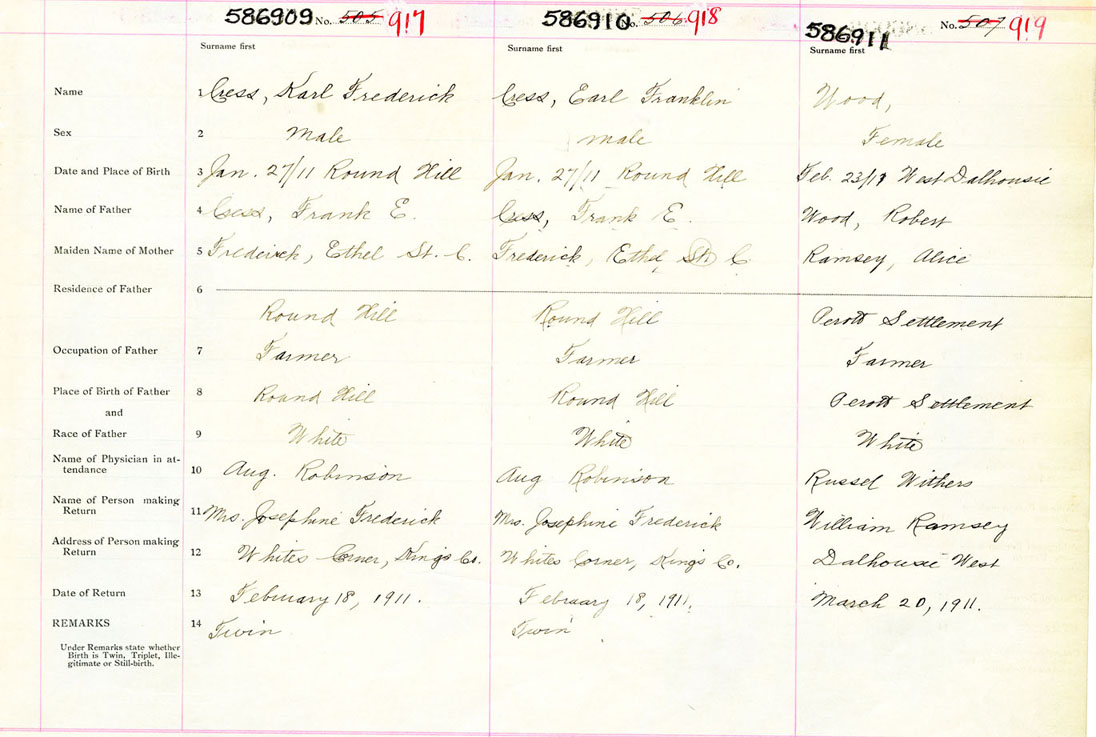 586909 No. 505 917 586910 No. 506 918 586911 No. 507 919
Surname first Surname first Surname first
Name 1 Cress, Karl Frederick Cress, Earl Franklin Wood,
Sex 2 Male male Female
Date and Place of Birth 3 Jan. 27/11 Round Hill Jan. 27/11 Round Hill Feb. 23/11 West Dalhousie
Name of Father 4 Cress, Frank E. Cress, Frank E. Wood, Robert
Maiden Name of Mother 5 Frederick, Ethel St. C. Frederick, Ethel St. C Ramsey, Alice
Residence of Father 6
Round Hill Round Hill Perott Settlement
Occupation of Father 7 Farmer Farmer Farmer
Place of Birth of Father 8 Round Hill Round Hill Perott Settlement
and
Race of Father 9 White White White
Name of Physician in at-
tendance 10 Aug. Robinson Aug Robinson Russel Withers
Name of Person making
Return 11 Mrs. Josephine Frederick Mrs. Josephine Frederick William Ramsey
Address of Person making
Return 12 Whites Corner, Kings Co. Whites Corner, Kings Co. Dalhousie West
Date of Return 13 February 18, 1911. February 18, 1911. March 20, 1911.
REMARKS 14 Twin Twin
Under Remarks state whether
Birth is Twin, Triplet, Ille-
gitimate or Still-birth.